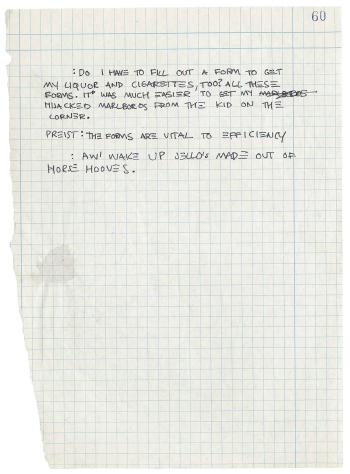 60
: DO I HAVE TO FILL OUT A FORM TO GET
MY LIQUOR AND CIGARETTES, TOO? ALL THESE
FORMS. IT WAS MUCH EASIER TO GET MY MARLBOROS
HIJACKED MARLBOROS FROM THE KID ON THE
CORNER.
PREIST: THE FORMS ARE VITAL TO EFFICIENCY
: AW! WAKE UP JELLO'S MADE OUT OF
HORSE HOOVES.